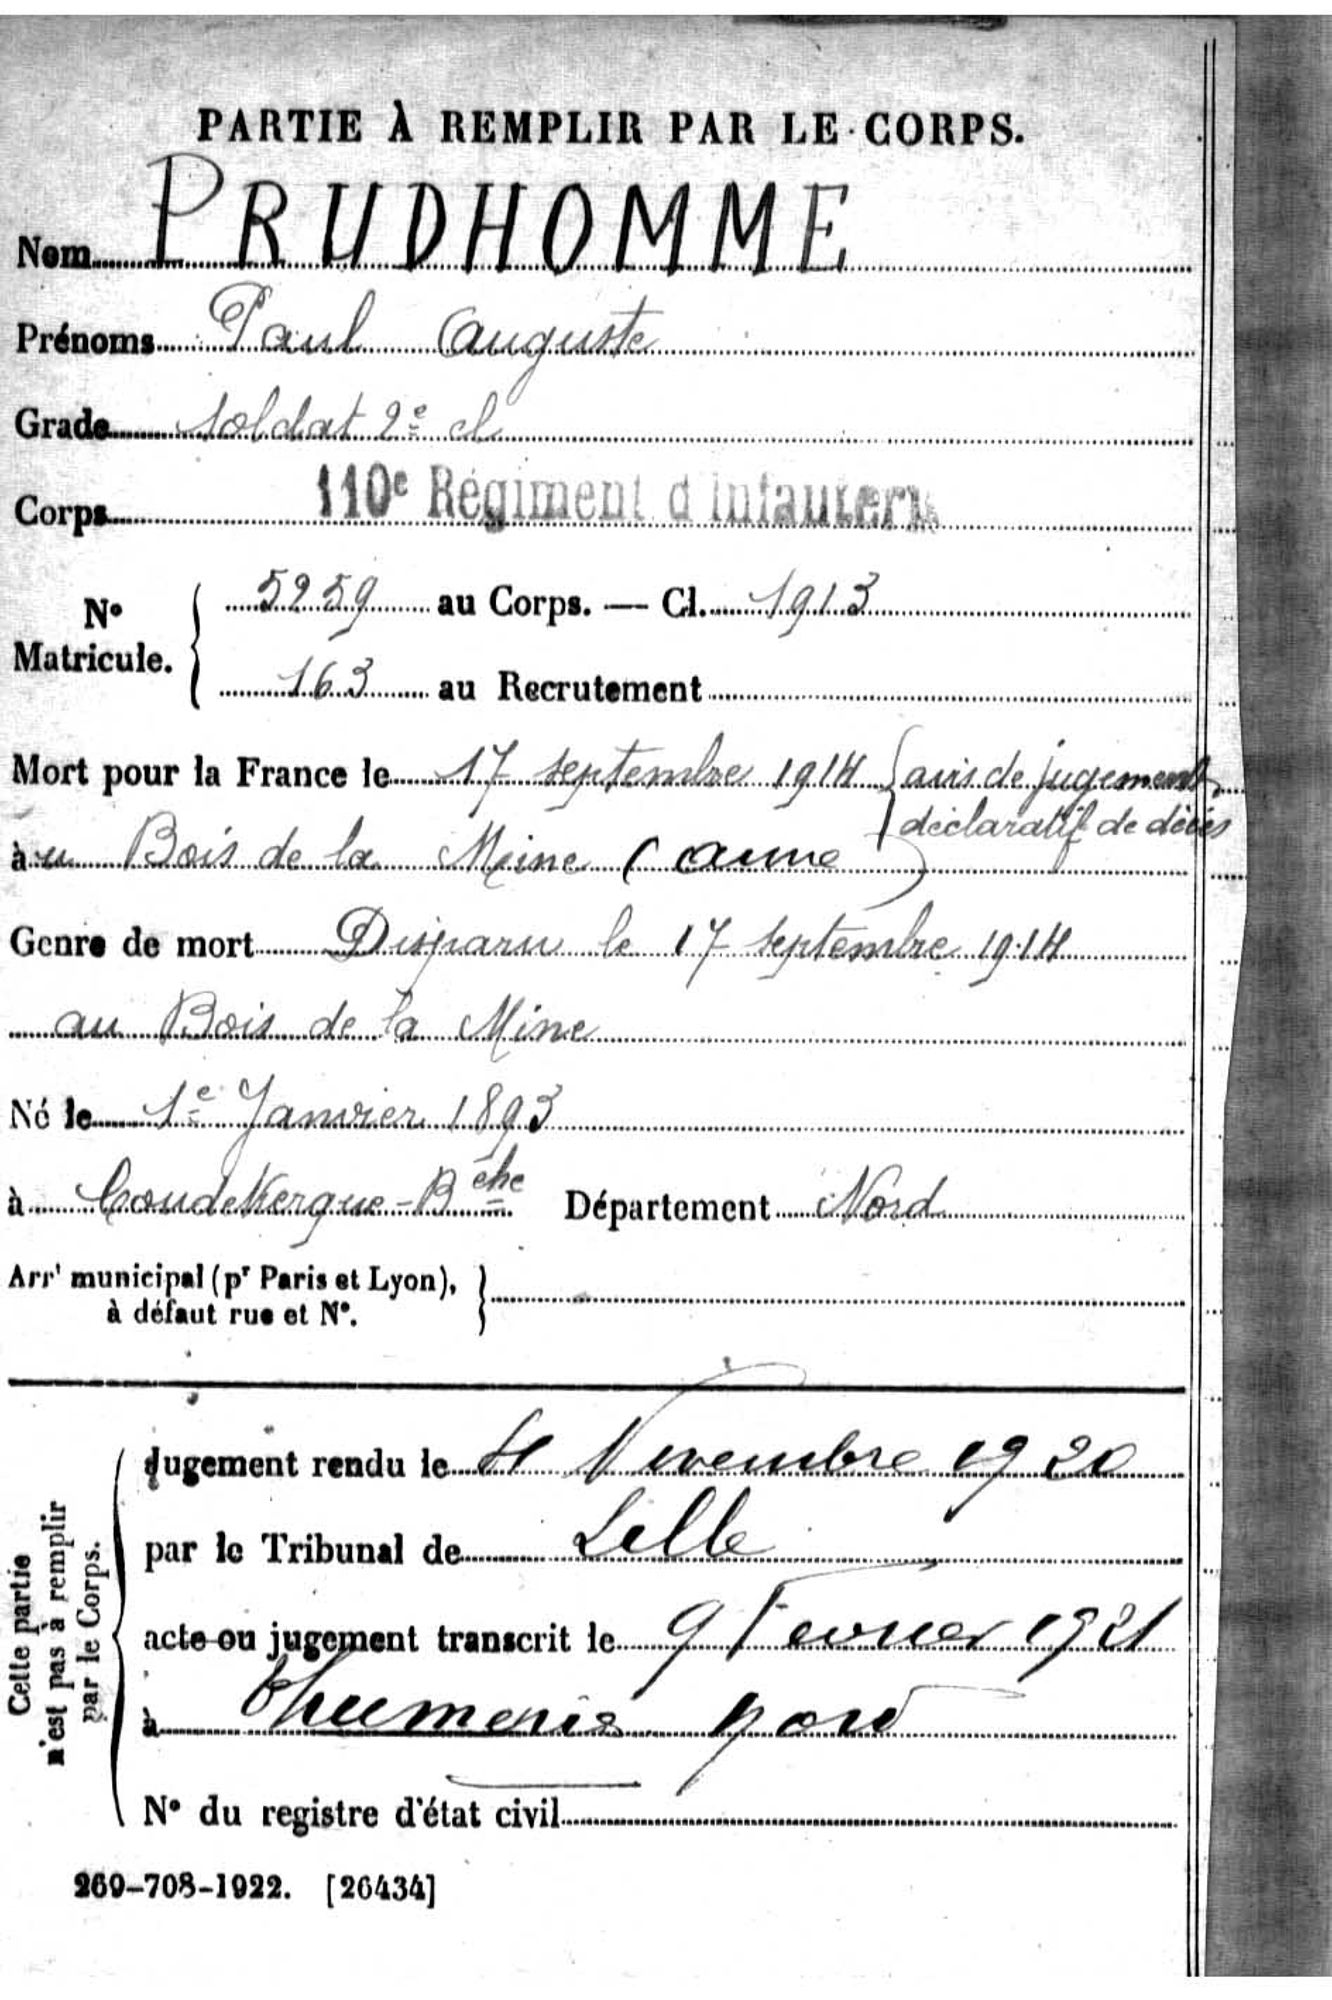 PARTIE À REMPLIR PAR LE CORPS.
Nom PRUDHOMME
Prénoms Paul Auguste
Grade soldat 2e cl
Corps 110e Régiment d'Infanterie
N° Matricule. { 5259 au Corps. — Cl. 1913
163 au Recrutement
Mort pour la France le 17 septembre 1914 { avis de jugement
déclaratif de décès
à u Bois de la Mine (
Genre de mort Disparu le 17 septembre 1914
au Bois de la Mine
Né le 1e Janvier 1893
à Coudekerque-Bche Département Nord
Arrt municipal (pr Paris et Lyon),
à défaut rue et N°. }
Cette partie
n'est pas à remplir
par le Corps.
Jugement rendu le 4 Novembre 1920
par le Tribunal de Lille
acte ou jugement transcrit le 9 Fevrier 1921
à Thumeries Nord
N° du registre d'état civil
269-708-1922. [26434]